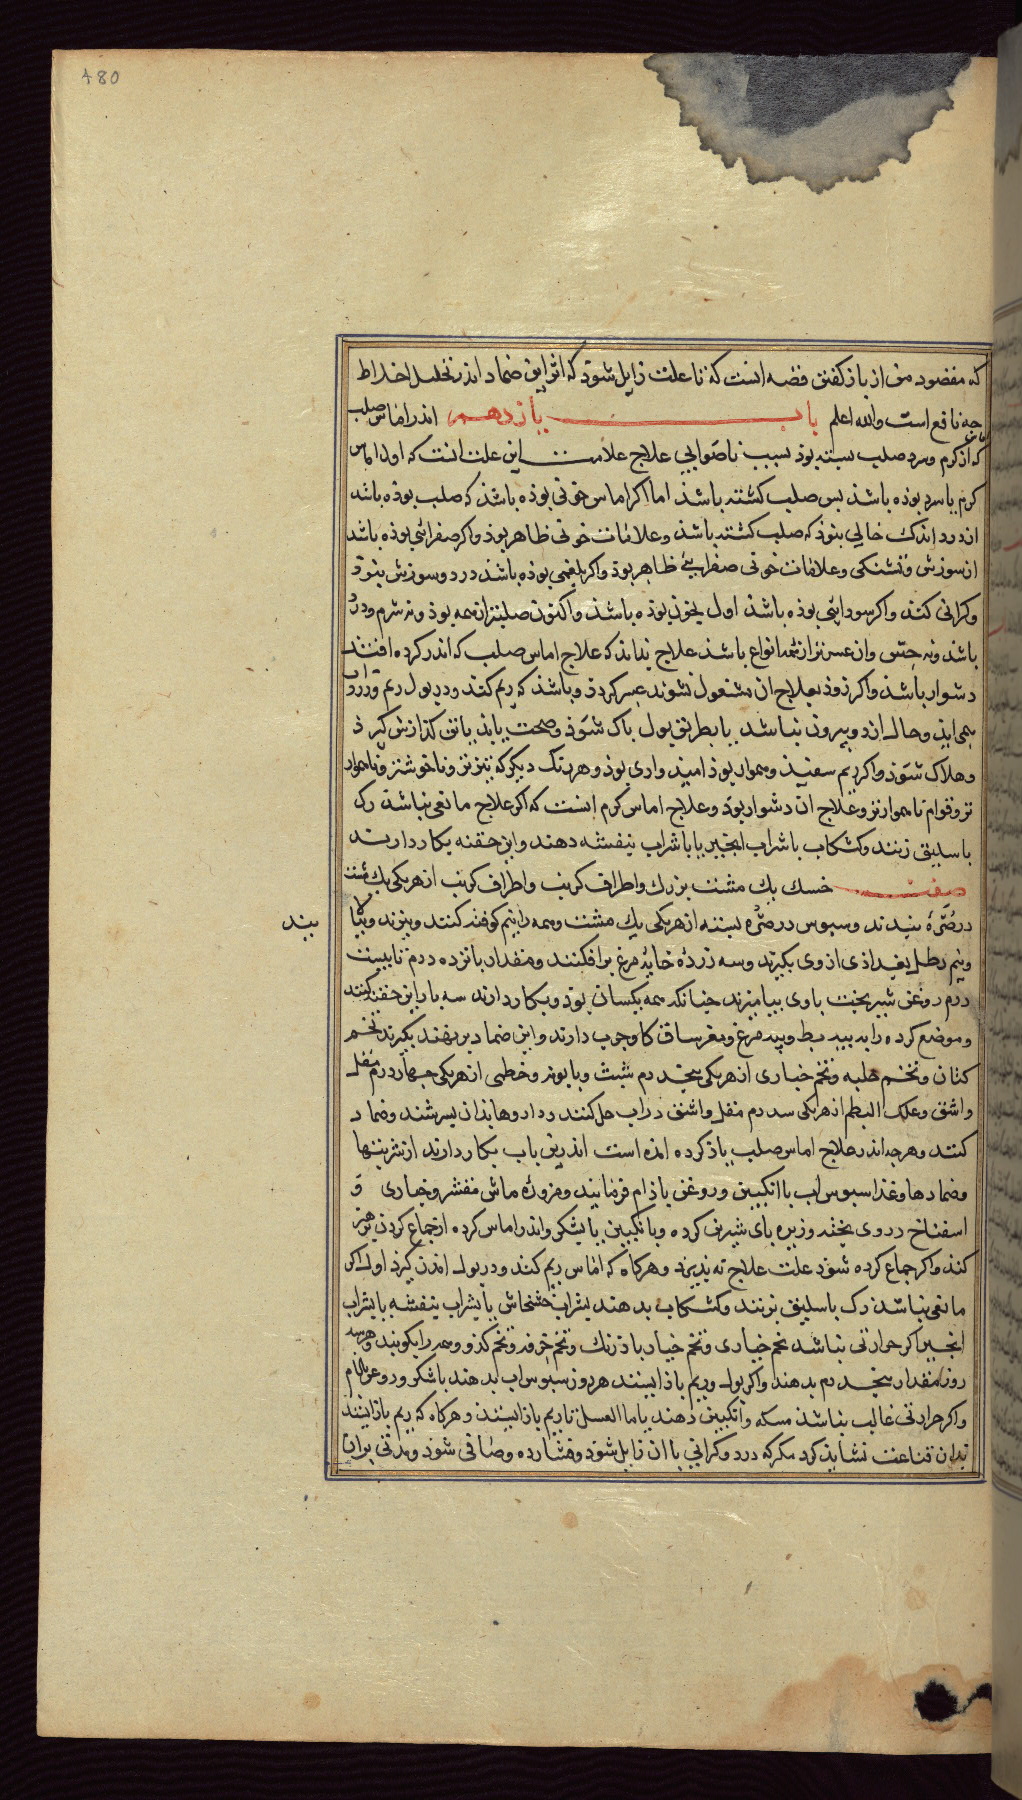 480
که مقصود من از باز کفتن قصه انست که تا علت زایل شوذ که اثر این ضماد اندر تحلیل اخلاط
جه نافع است والله اعلم باب یازدهم اندر اماس صلب
که از کرم وسرد صلب بسته بوذ بسبب ناصوابی علاج علامت این علت انست که اول اماس
کرم یا سرد بوذه باشذ بس صلب کشته باشذ اما اکر اماس خونی بوذه باشذ که صلب بوذه باشد
از درد اندک خالی نبوذ که صلب کشته باشذ وعلامات خونی ظاهر بوذ واکر صفرائی بوذه باشد
از سوزش وتشنکی وعلامات خونی صفرایی ظاهر بوذ واکر بلغمی بوذه باشذ درد وسوزش نبوذ
وکرانی کند واکر سودایی بوذه باشذ اول بخون بوذه باشذ واکنون صلبتر از همه بوذ ونه شرم ودرد
باشد ونه حس وان عسرتر از همه انواع باشذ علاج بداند که علاج اماس صلب که اندر کرده افتد
دشوار باشذ واکر زوذ بعلاج ان مشغول نشوند عسر کردذ وباشذ که ریم کند ودر بول ریم
همی ایذ وحال از دو بیرون نباشد یا بطریق بول باک شوذ وصحت یابذ یا تن کذازش کیرذ
وهلاک شوذ واکر ریم سفیذ وهموار بوذ امیذ واری بوذ وهر رنک دیکر که تیره تر وناخوشتر وناهموار
تر وقوام ناهموارتر وعلاج ان دشوار بوذ وعلاج اماس کرم انست که اکر علاج مانعی نباشذ رک
باسلیق زنند وکشکاب با شراب انجیر یا با شراب بنفشه دهند واین حقنه بکار دارند
صفت خسک یک مشت بزرک واطراف کرنب واطراف کرنب از هریکی یک مشت
در صره بندند وسبوس در صره بسته از هریکی یک مشت وهمه را نیم کوفته کنند وبپزند
بیند
ونیم رطل بغدادی از وی بکیرند وسه زرده خایه مرغ برافکنند ومقدار بانزده درم تا بیست
درم روغن شیربخت با وی بیامیزند جنانکه همه یکسان بوذ وبکار دارند سه بار این حقنه کنند
وموضع کرده را به بیه بط وبیه مرغ ومغز ساق کاو جرب دارند واین ضماد برنهند بکیرند تخم
کتان وتخم حلبه وتخم خیاری از هریکی بنجدرم شبث وبابونه وخطمی از هریکی جهاردرم مقل
واشق وعلک البطم از هریکی سه درم مقل واشق در اب حل کنند وداروها بذان بسرشند وضماد
کنند وهرجه اندر علاج اماس صلب یاذ کرده امذه است اندرین باب بکار دارند از شربتها
وضمادها وغذا سبوس اب با انکبین وروغن باذام فرمایند ومزوره ماش مقشر وخیاری و
اسفناخ در وی بخته وزیره بای شیرین کرده وبا انکبین یا بشکر واندر اماس کرده از جماع کردن برهیز
کند واکر جماع کرده شوذ علت علاج نه بذیرد وهرکاه که اماس ریم کند ودر بول امدن کیرد اول اکر
مانعی نباشذ رک باسلیق بزنند وکشکاب بدهند بشراب خشخاش یا بشراب بنفشه یا بشراب
انجیر اکر حرارتی نباشد تخم خیاری وتخم خیار باذرنک وتخم خرفه وتخم کذو وهمه را بکوبند وهر سه
روز مقدار بنجدرم بدهند واکر بول وریم باذ ایستد هر روز سبوس اب بدهند با شکر وروغن باذام
واکر حرارتی غالب نباشذ مسکه وانکبین دهند یا ما العسل تا ریم باز ایستد وهرکاه که ریم باز ایستد
بدان قناعت نشایذ کرد مکر که درد وکرانی با ان زایل شوذ وقشارده وصافی شوذ ومدتی بران